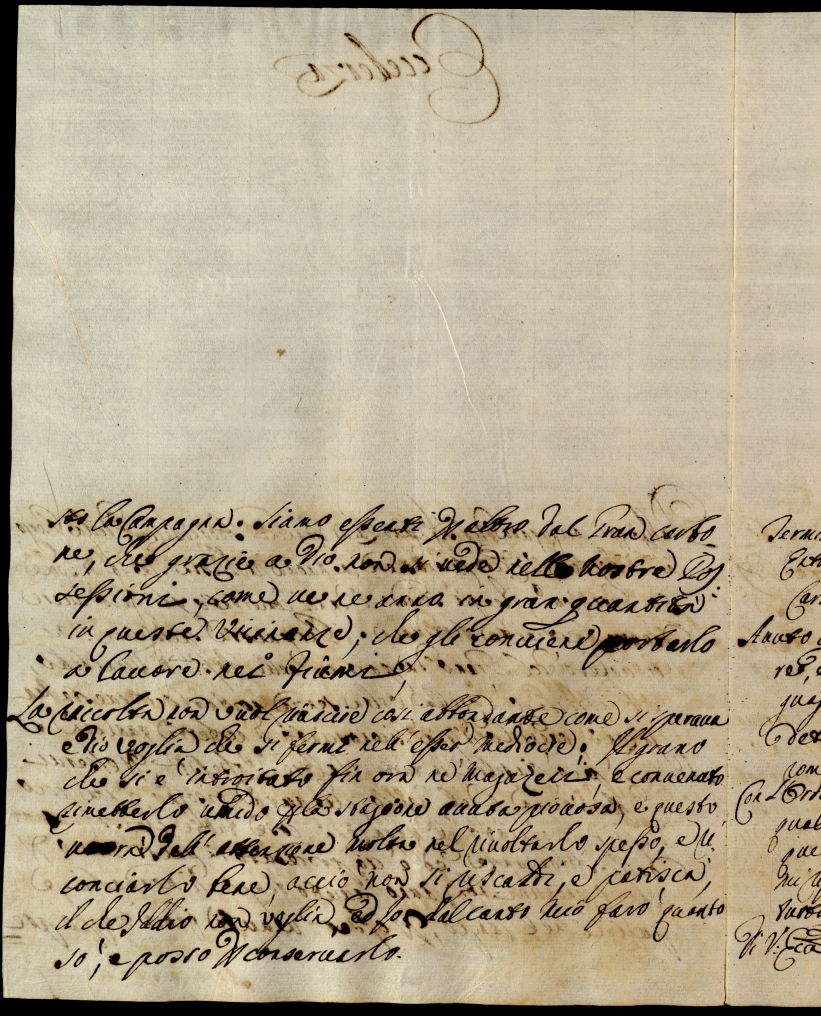 Eccelenza
la Campagna. Siamo essenti d'altro dal Gran carbo
ne, che grazie a Dio non si vede nelle nostre Pos
sessioni, come ve ne anno in gran quantità
in queste Vicinanze, che gli conviene portarlo
a lavare nei Fiumi
La raccolta non vuol riuscire così abbondante come si sperava
e Dio voglia che si fermi nell'esser mediocre; Il grano
che si è introitato fin ora ne Magazeni, è convenuto
rimetterlo umido p la stagione avuta piovosa, e questo
dell' attenzione molta nel rivoltarlo spesso, e
conciarlo bene, acciò non si riscaldi, e patisca,
il che Iddio non voglia, ed Io dal canto mio farò quanto
so, e posso di conservarlo.
Termi
Entr
Car
Avuto
re
qua
det
com
Con L'Ord
qual
que
mi
tutto
Di V. Ecc